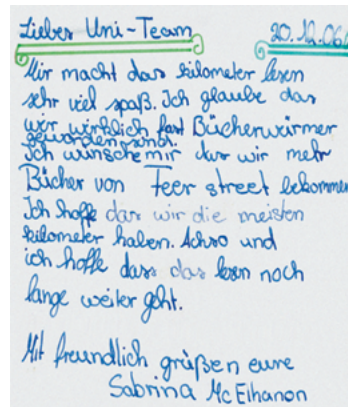 Liebes Uni-Team 20.12.06
Mir macht das kilometer lesen
sehr viel spaß. Ich glaube das
wir wirklich fast Bücherwürmer
geworden sind.
Ich wünsche mir das wir mehr
Bücher von Feer street bekommen
Ich hoffe das wir die meisten
kilometer haben. Achso und
ich hoffe dass das lesn noch
lange weiter geht.
Mit freundlich grüßen eure
Sabrina McElhanon